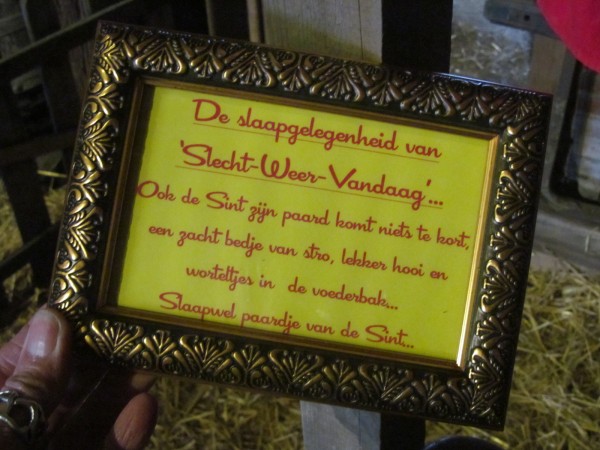 De slaapgelegenheid van
'Slecht-Weer-Vandaag'...
Ook de Sint zijn paard komt niets te kort,
een zacht bedje van stro, lekker hooi en
worteltjes in de voederbak...
Slaapwel paardje van de Sint...